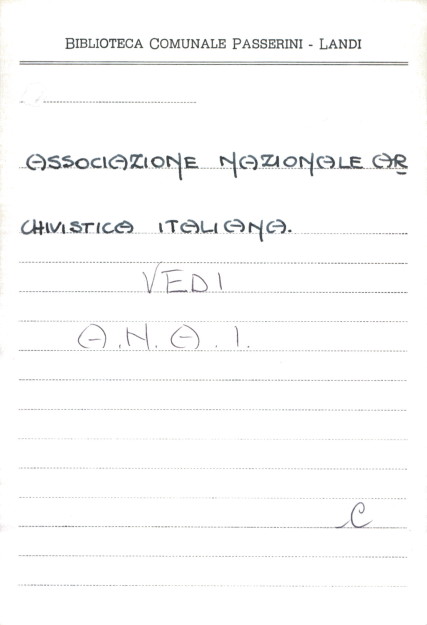 BIBLIOTECA COMUNALE PASSERINI - LANDI
ASSOCIAZIONE NAZIONALE AR
CHIVISTICA ITALIANA.
VEDI
A.N.A.I.
C